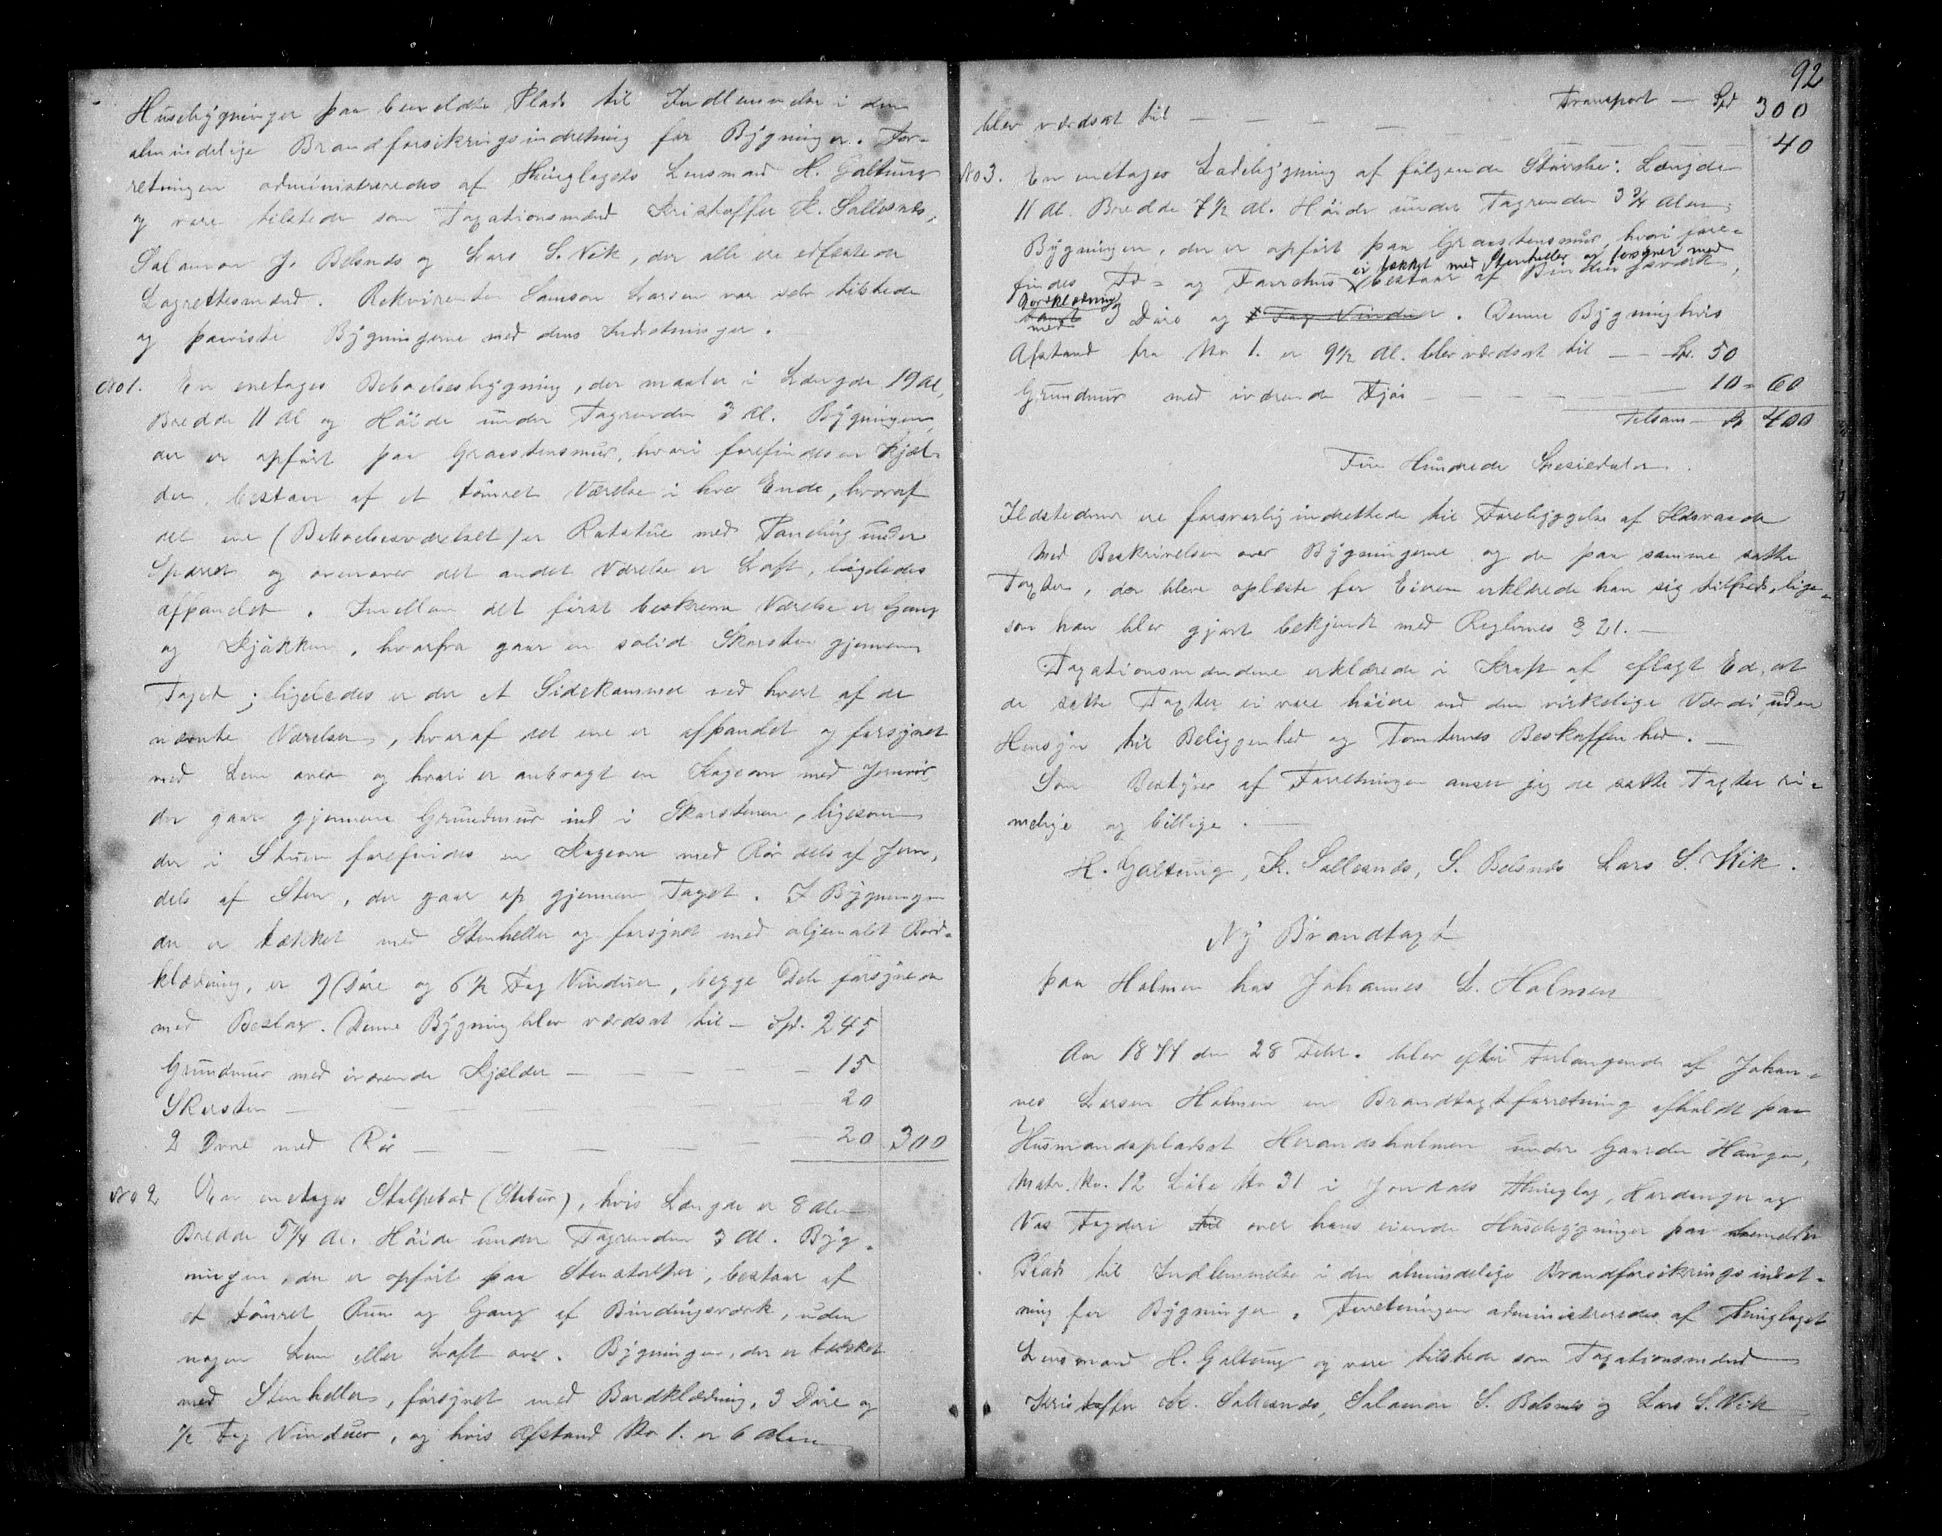 Husebygninger paa bemeldte Plads til Indlemmelse i den
almindelige Brandforsikringsindretning for Bygninger. For-
retningen administreredes af Thinglagets Lensmand H. Galtung
og vare tilstede som Taxationsmænd Kristoffer K. Sallesnds,
Salamon J. Belsnds og Lars S. Vik, der alle ere edfæstede
Lagrettesmænd. Rekvirenten Samson Larsen var selv tilstede
og paaviste Bygningerne med dens Indretninger.
No 1. En enetages Beboelsesbygning, der maaler i Længde 19 Al,
Bredde 11 Al og Höide under Tagrenden 3 Al. Bygningen,
der er opfört paa Graastensmur, hvori forefindes en Kjæl-
der, bestaar af et tömret Værelse i hver Ende, hvoraf
det ene (Beboelsesværelset) er Rotstue med Paneling under
Spærret og ovenover det andet Værelse er Loft, ligeledes
afpanelet. Imellem det först beskrevne Værelse er Gang
og Kjökken, hvorfra gaar en solid Skorsten gjennem
Taget; ligeledes er der et Sidekammed ved hvert af de
nævnte Værelser, hvoraf det ene er afpanelet og forsynet
med Lem over og hvori er anbragt en Kageovn med Jernrör,
der gaar gjennem Grundmur ind i Skorstenen, ligesom
der i Stuen forefindes en Kageovn med Rör dels af Jern,
dels af Sten, der gaar op gjennem Taget. I Bygningen
der er tækket med Stenheller og forsynet med oljemalt Bord-
klædning, er 9 Döre og 6 1/2 Fag Vinduer, begge Dele forsynede
med Beslag. Denne Bygning blev værdsat til – Spd. 245
Grundmur med iværende Kjælder – – – – – 15
Skorsten – – – – – 20
2 Ovne med Rör – – – – – 20 300
No 2 En enetages Stolpebod (Stabur), hvis Længde er 8 Alen
Bredde 5 1/4 Al. Höide under Tagrenden 3 Al. Byg-
ningen, der er opfört paa Stenstolper, bestaar af
et tömret Rum og Gang af Bindingsværk, uden
nogen Lem eller Loft over. Bygningen, der er tækket
med Stenheller, forsynet med Bordklædning, 3 Döre og
1/2 Fag Vinduer, og hvis Afstand No 1. er 6 Alen
92
Transport – Spd 300
blev værdsat til – – – – – 40
No 3. En enetages Ladebygning af fölgende Störrelse: Længde
11 Al. Bredde 7 1/2 Al. Höide under Tagrenden 3 3/4 Alen;
Bygningen, der er opfört paa Graastensmur, hvori fore-
er tækket med Stenheller og forsynet med
findes Fæ- og Faarehus bestaar af Bindingsværk,
Bordklædning
samt med 3 Döre og Fag Vinduer. Denne Bygning hvis
Afstand fra No 1. er 9 1/2 Al. blev værdsat til – – Sp. 50
Grundmur med iværende Fjös – – – – 10 = 60
Tilsam – Sp 400
Fire Hundrede Spesiedaler.
Ildstederne ere forsvarlig indrettede til Forebyggelse af Ildsvaade
Med Beskrivelsen over Bygningerne og de paa samme satte
Taxter, der bleve oplæste for Eieren erklærede han sig tilfreds, lige-
som han blev gjort bekjendt med Reglernes § 21. –
Taxationsmændene erklærede i Kraft af aflagt Ed, at
de satte Taxter ei vare höiere end den virkelige Værdi, uden
Hensyn til Beliggenhed og Tomternes Beskaffenhed. –
Som Bestyrer af Forretningen anser jeg de satte Taxter ri-
melige og billige. –
H. Galtung, K. Sallesnds, S. Belsnds Lars S. Vik.
Ny Brandtaxt
paa Holmen hos Johannes L. Holmen
Aar 1877 den 28 Febr. blev efter Forlangende af Johan-
nes Larsen Holmen en Brandtaxtforretning afholdt paa
Husmandspladset Herandsholmen under Gaarden Haugen,
Matr. No. 12 Löbe No 31 i Jondals Thinglag, Hardanger og
Vos Fogderi til over hans eiende Husebygninger paa bemeldte
Plads til Indlemmelse i den almindelige Brandforsikringsindret-
ning for Bygninger. Forretningen administreredes af Thinglaget
Lensmand H. Galtung og vare tilstede som Taxationsmænd
Kristoffer K. Sallesnds, Salamon S. Belsnds og Lars S. Vik